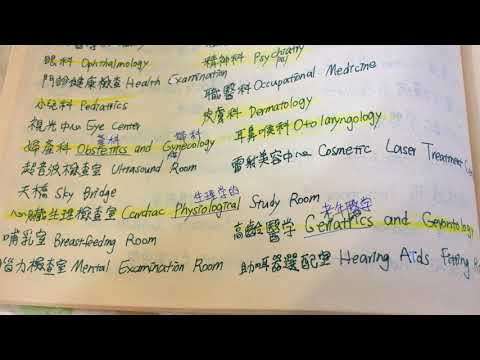 眼科 Ophthalmology
精神科 Psychiatry
門診健康檢查 Health Examination
職醫科 Occupational Medicine
小兒科 Pediatrics
皮膚科 Dermatology
視光中心 Eye Center
耳鼻喉科 Otolaryngology
產科 婦科
婦產科 Obstetrics and Gynecology
超音波檢查室 Ultrasound Room
雷射美容中心 Cosmetic Laser Treatment
天橋 Sky Bridge
生理學的
心臟生理檢查室 Cardiac Physiological Study Room
老年醫學
高齡醫學 Geriatrics and Gerontology
哺乳室 Breastfeeding Room
腦力檢查室 Mental Examination Room
助聽器選配室 Hearing Aids Fitting